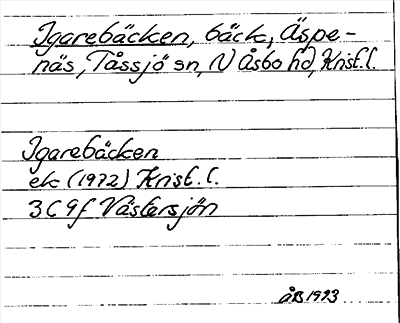 Igarebäcken, bäck, Äspe-
näs, Tåssjö sn, N Åsbo hd, Krist. l.
Igarebäcken
ek (1972) Krist. l.
3C 9f Västersjön
ÅB 1973